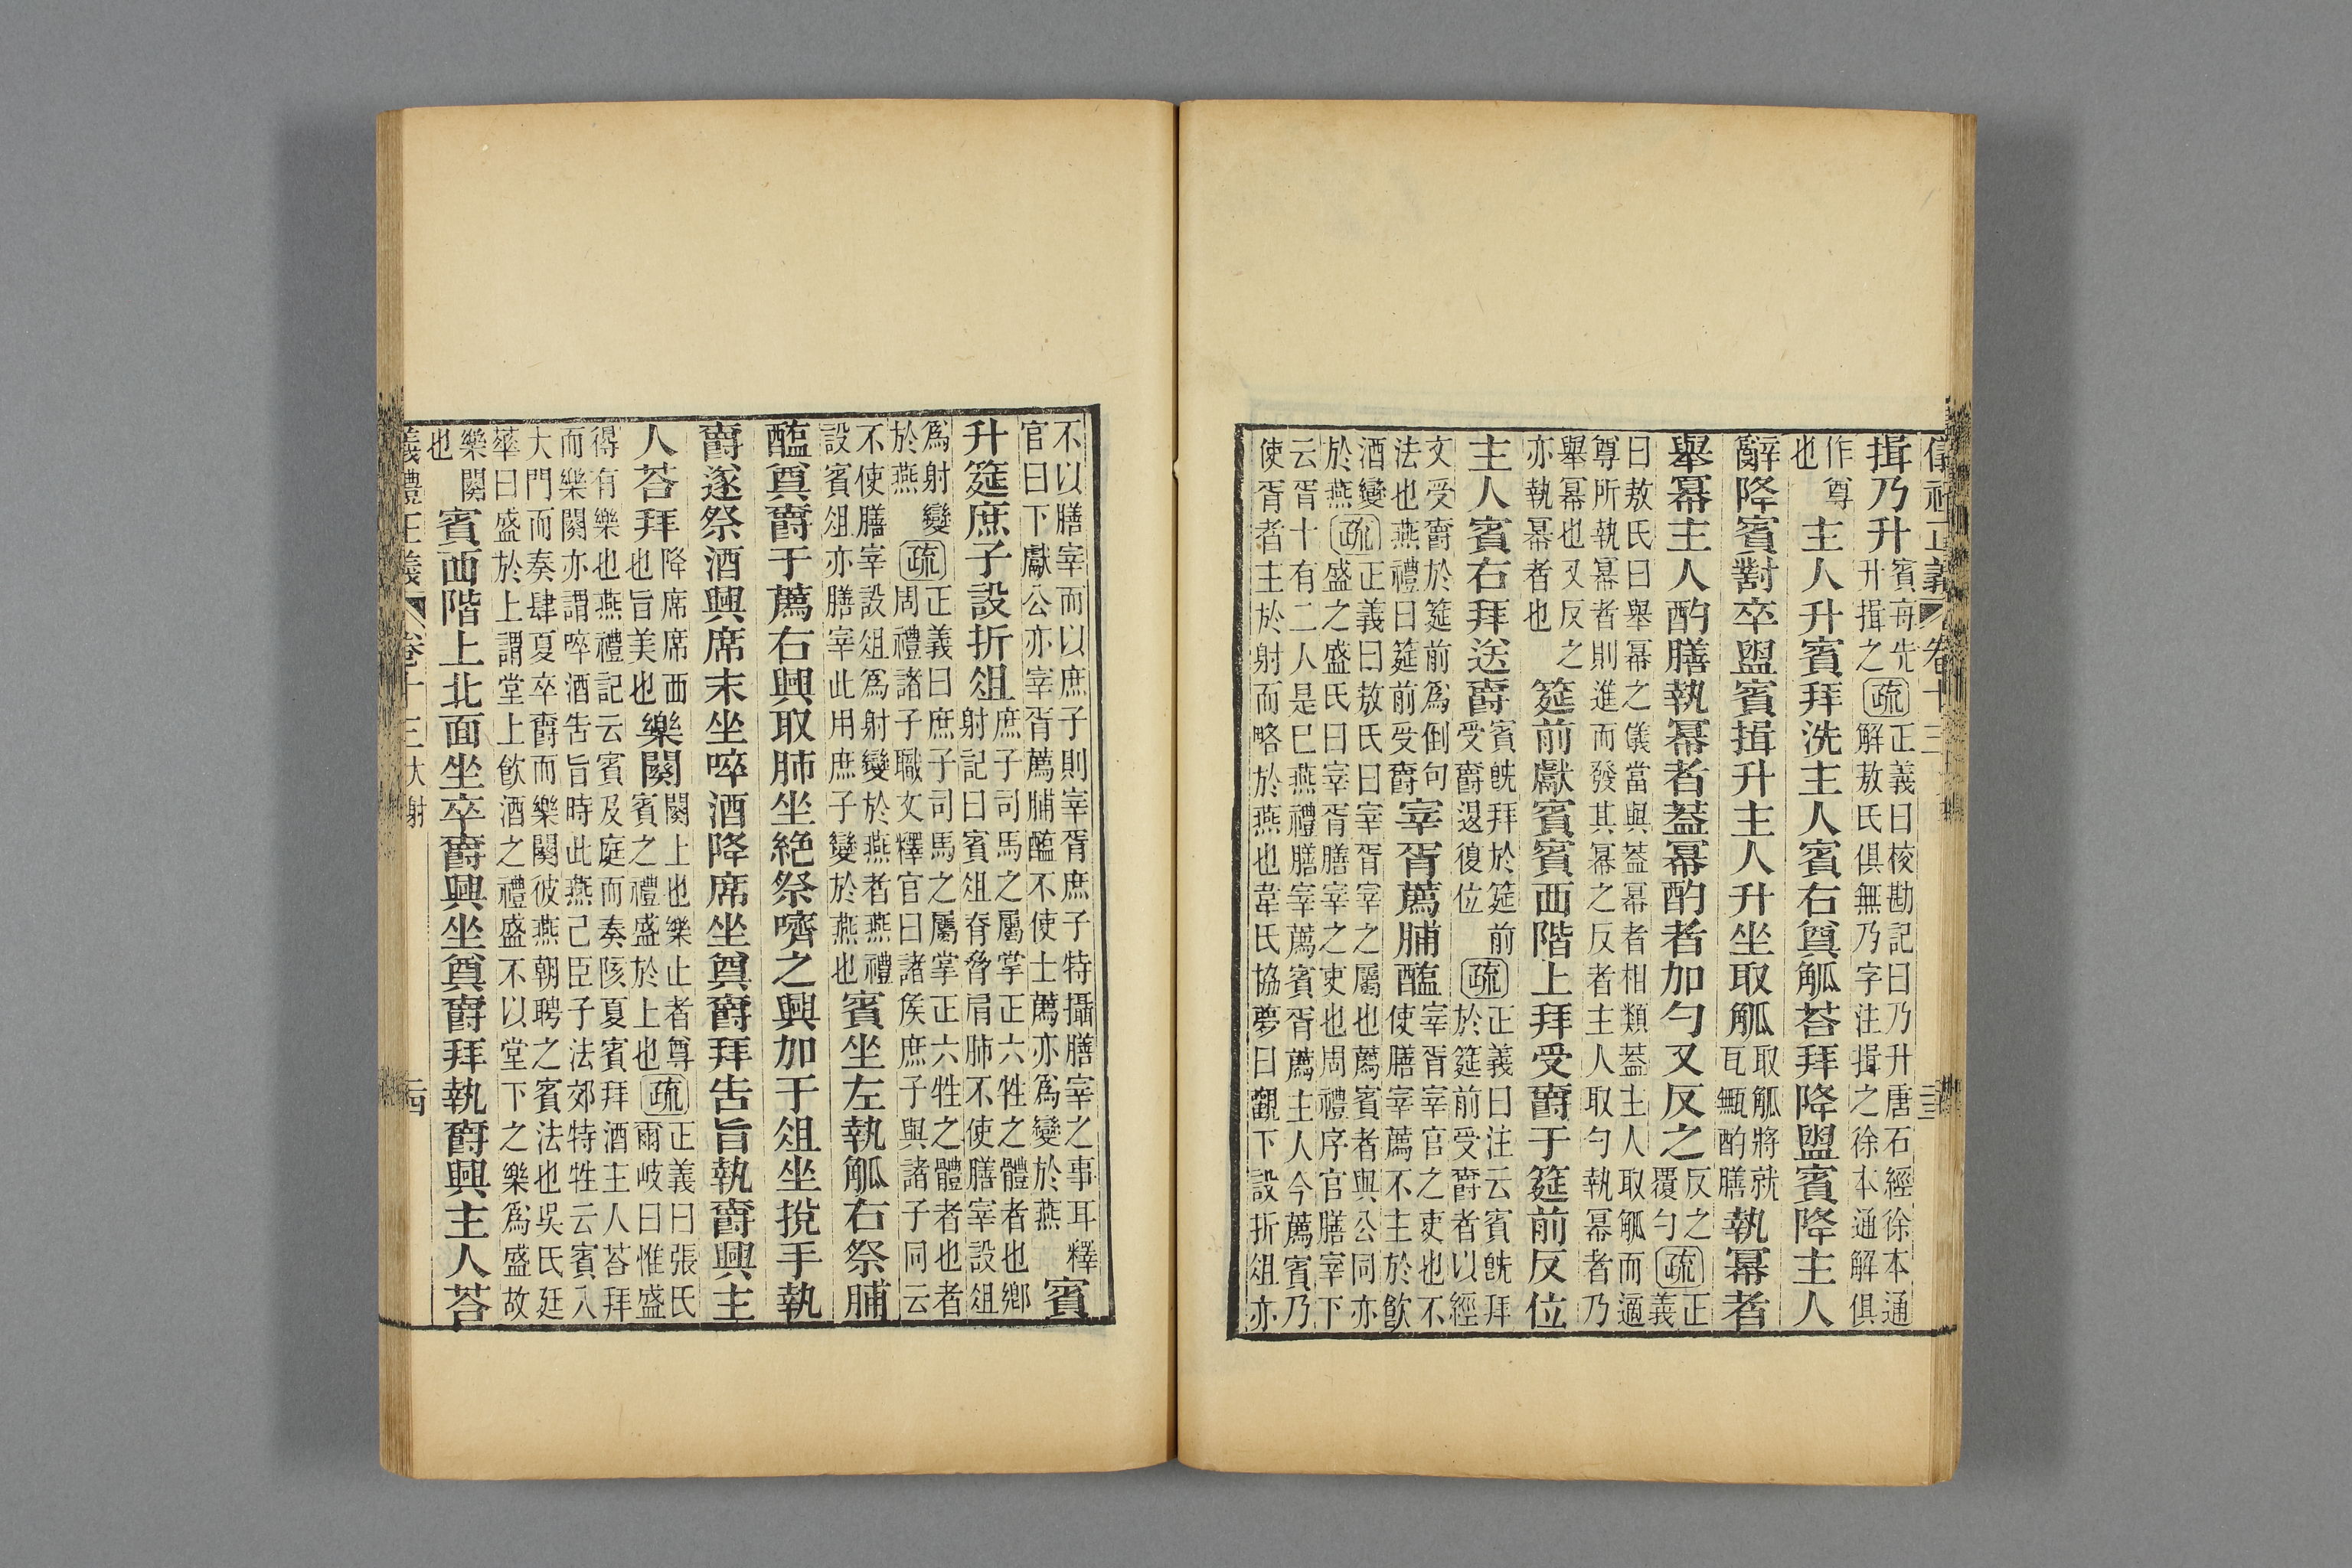 儀禮正義 卷十三 三三
揖乃升賓每先升揖之疏正義曰校勘記曰乃升唐石經徐本通解敖氏俱無乃字注揖之徐本通解俱
作尊也主人升賓拜洗主人賓右奠觚荅拜降盥賓降主人
辭降賓對卒盥賓揖升主人升坐取觚取觚將就瓦甒酌膳執冪者
舉冪主人酌膳執冪者蓋冪酌者加勺又反之反之覆勺疏正義
曰敖氏曰舉冪之儀當與蓋冪者相類蓋主人取觚而適尊所執冪者則進而發其冪之反者主人取勺執冪者乃
舉冪也又反之亦執冪者也筵前獻賓賓西階上拜受爵于筵前反位
主人賓右拜送爵賓既拜於筵前受爵退復位疏正義曰注云賓既拜於筵前受爵者以經
文受爵於筵前爲倒句法也燕禮曰筵前受爵宰胥薦脯醢宰胥宰官之吏也不使膳宰薦不主於飲
酒變於燕疏正義曰敖氏曰宰胥宰之屬也薦賓者與公同亦盛之盛氏曰宰胥膳宰之吏也周禮序官膳宰下
云胥十有二人是巳燕禮膳宰薦賓胥薦主人今薦賓乃使胥者主於射而略於燕也韋氏協夢曰觀下設折俎亦
不以膳宰而以庶子則宰胥庶子特攝膳宰之事耳釋官曰下獻公亦宰胥薦脯醢不使士薦亦爲變於燕賓
升筵庶子設折俎庶子司馬之屬掌正六牲之體者也鄉射記曰賓俎脊脅肩肺不使膳宰設俎
爲射變於燕疏正義曰庶子司馬之屬掌正六牲之體者也者周禮諸子職文釋官曰諸侯庶子與諸子同云
不使膳宰設俎爲射變於燕者燕禮設賓俎亦膳宰此用庶子變於燕也賓坐左執觚右祭脯
醢奠爵于薦右興取肺坐絕祭嚌之興加于俎坐挩手執
爵遂祭酒興席末坐啐酒降席坐奠爵拜告旨執爵興主
人荅拜降席席西也旨美也樂闋闋止也樂止者尊賓之禮盛於上也疏正義曰張氏爾岐曰惟盛
得有樂也燕禮記云賓及庭而奏陔夏賓拜酒主人荅拜而樂闋亦謂啐酒告旨時此燕己臣子法郊特牲云賓入
大門而奏肆夏卒爵而樂闋彼燕朝聘之賓法也吳氏廷華曰盛於上謂堂上飲酒之禮盛不以堂下之樂爲盛故
樂闋也賓西階上北面坐卒爵興坐奠爵拜執爵興主人荅
義禮正義 卷十三 大射 三四